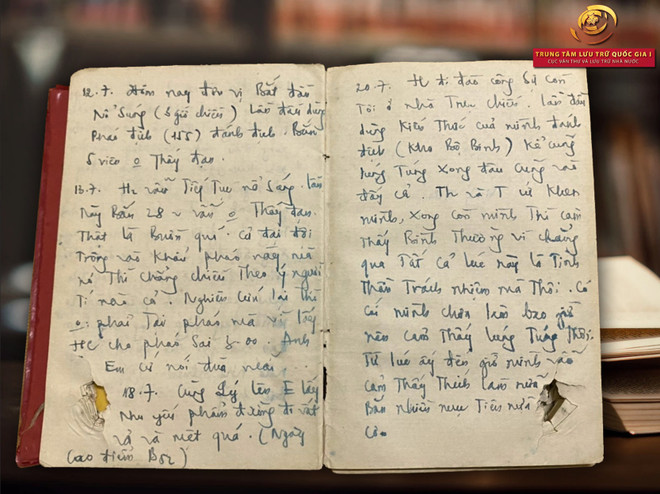 TRUNG TÂM LƯU TRỮ QUỐC GIA I
CỤC VĂN THƯ VÀ LƯU TRỮ NHÀ NƯỚC
12.7. Hôm nay đơn vị Bắt đầu
Nổ Súng (5 giờ chiều) Lần đầu dùng
Pháo địch (155) đánh địch. Bắn
5 viên o Thấy đạn.
13.7. H vẫn Tiếp Tục nổ Súng. lần
này Bắn 28 v vẫn o Thấy đạn.
Thật là Buồn quá. cả đại đội
Trông vào khẩu pháo này mà
nó Thì chẳng chiều Theo lý người
Tí nào cả. Nghiên cứu lại thì
o phải Tại pháo mà vì lấy
HC cho pháo Sai 5-00. Anh
Em cứ nói đùa
18.7. Cùng Lý lên E lấy
Nhu yếu phẩm đường đi vất
vả và mệt quá. (Ngày
Cao điểm B52)
20.7. H đi đào công Sự còn
Tôi ở nhà Trực chiến. Lần đầu
dùng Kiến Thức của mình đánh
địch (Kho Bộ Binh) Kể cũng
lúng Túng Xong đâu cũng vào
đấy cả. Th và T cứ Khen
mình, Xong Còn mình Thì cảm
Thấy Bình Thường vì chẳng
qua Tất cả lúc này là Tinh
Thần Trách nhiệm mà Thôi. Có
cái mình chưa làm bao giờ
nên cảm Thấy lúng Túng Thôi.
Từ lúc ấy đến giờ mình vẫn
cảm Thấy Thích làm nữa
Bắn nhiều nữa Tiến nữa